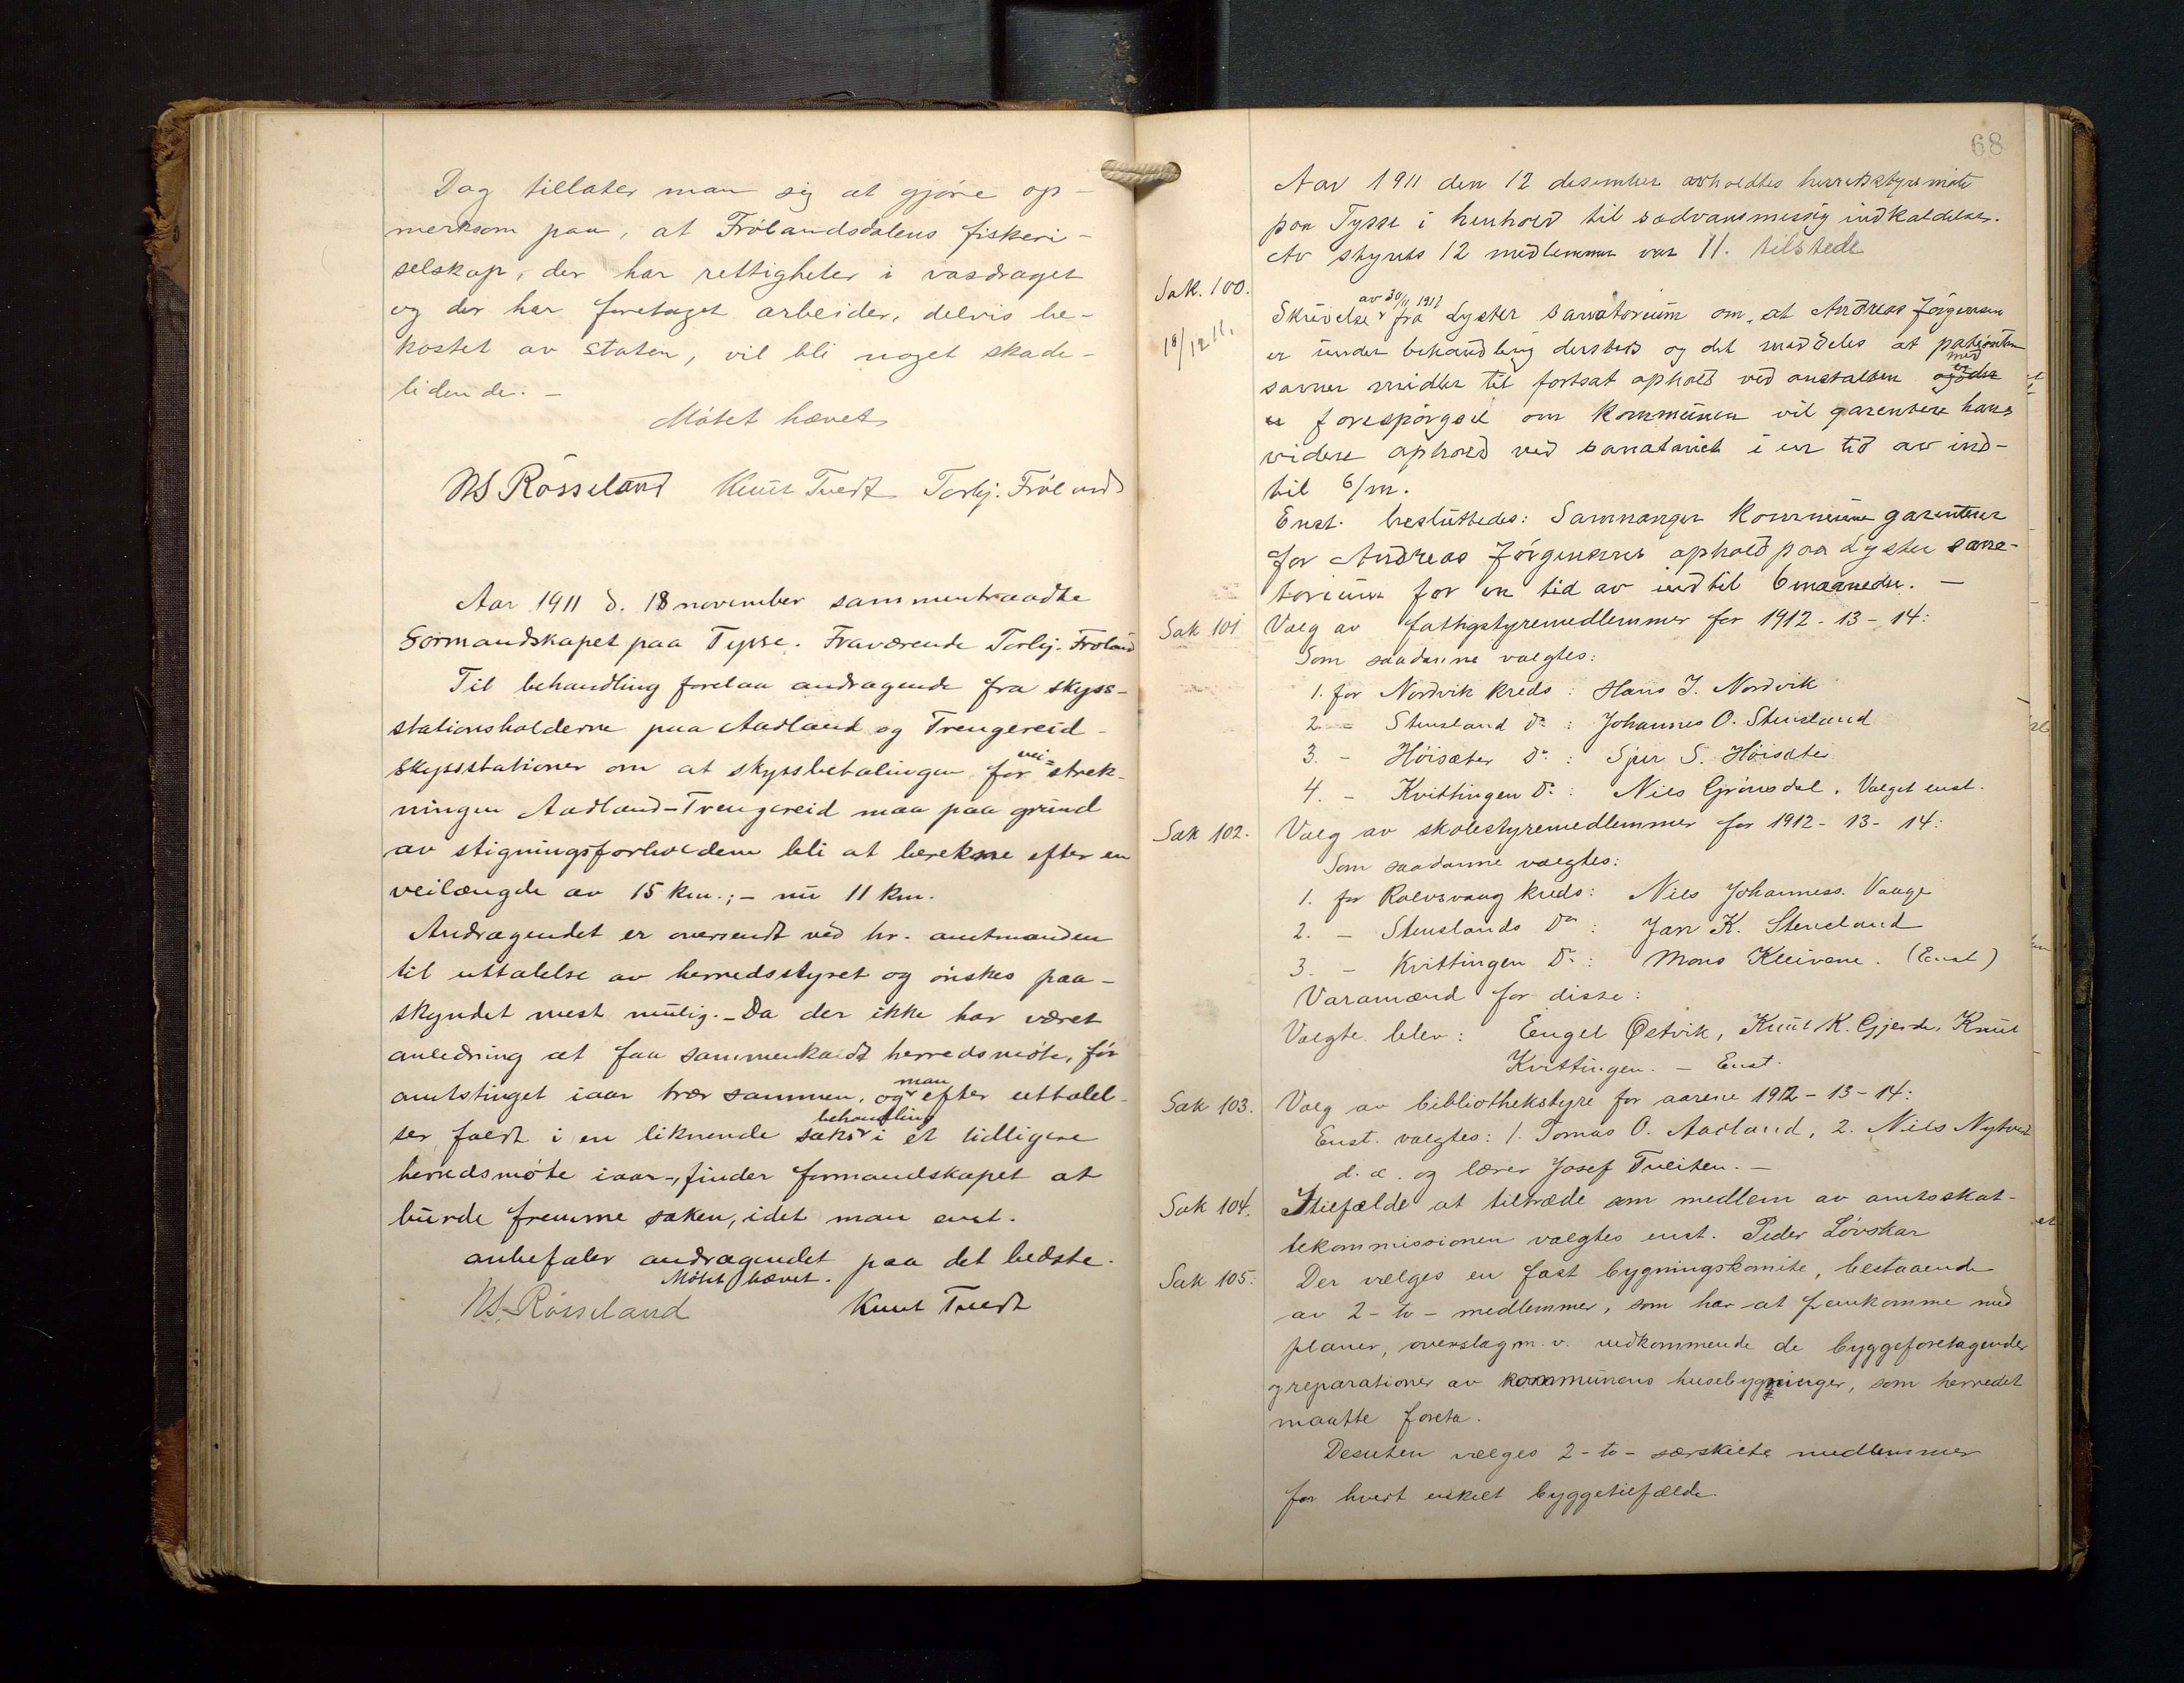 Dog tillater man sig at gjöre op-
merksom paa, at Frölandsdalens fiskeri-
selskap, der har rettigheter i vasdraget
og der har foretaget arbeider, delvis be-
kostet av staten, vil bli noget skade-
lidende. -
Mötet hævet
NS Rösseland Knut Tvedt Torbj. Fröland
Aar 1911 d. 18 november sammentraadte
Formandskapet paa Tysse. Fraværende Torbj. Fröland
Til behandling forelaa andragende fra skyss-
stationsholderne paa Aadland og Trengereid
skyssstationer om at skyssbetalingen for vei=strek-
ningen Aadland-Trengereid maa paa grund
av stigningsforholdene bli at berekne efter en
veilængde av 15 km.; - nu 11 km.
Andragendet er oversendt ved hr. amtmanden
til uttalelse av herredsstyret og önskes paa-
skyndet mest mulig. - Da der ikke har været
anledning at faa sammenkaldt herredsmöte, för
amtstinget iaar trær sammen, og man efter uttalel-
ser faldt i en liknende saks behandling i et tidligere
herredsmöte iaar-, finder formandskapet at
burde fremme saken, idet man enst.
anbefaler andragendet paa det bedste.
Mötet hævet.
NS. Rösseland Knut Tvedt
68
Aar 1911 den 12 desember avholdtes herredsstyremöte
paa Tysse i henhold til sedvansmessig indkaldelse.
Av styrets 12 medlemmer var 11. tilstede
Sak. 100.
18/12 11.
Skrivelse av 30/11 1911 fra Lyster sanatorium om, at Andreas Jörgensen
er under behandling dersteds og det meddeles at patienten
savner midler til fortsat ophold ved anstalten med
en forespörgsel om kommunen vil garentere hans
videre ophold ved sanatoriet i en tid av ind-
til 6/m.
Enst. besluttedes: Samnanger kommune garenterer
for Andreas Jörgensens ophold paa Lyster sana-
torium for en tid av indtil 6 maaneder. -
Sak 101 Valg av fattigstyremedlemmer for 1912-13-14:
Som saadanne valgtes:
1. for Nordvik kreds: Hans J. Nordvik
2 - Stensland do : Johannes O. Stensland
3. - Höisæter do : Sjur S. Höisæter
4. - Kvittingen do : Nils Grönsdal. Valget enst.
Sak 102. Valg av skolestyremedlemmer for 1912-13-14:
Som saadanne valgtes:
1. for Rolvsvaag kreds: Nils Johanness. Vaage
2. - Stenslands do : Jan K. Stensland
3. - Kvittingen do : Mons Kleivane. (Enst)
Varamænd for disse:
Valgte blev: Engel Østvik, Knut K. Gjerde, Knut
Kvittingen. - Enst.
Sak 103. Valg av bibliothekstyre for aarene 1912-13-14:
Enst. valgtes: 1. Tomas O. Aadland, 2. Nils Nytvedt
d. æ. og lærer Josef Tveiten. -
Sak 104. I tilfælde at tiltræde som medlem av amtsskat-
tekommissionen valgtes enst. Peder Lövskar
Sak 105: Der vælges en fast bygningskomite, bestaaende
av 2-to-medlemmer, som har at fremkomme med
planer, overslag m. v. vedkommende de byggeforetagender
og reparationer av kommunens husebygninger, som herredet
maatte foreta.
Desuten vælges 2-to-særskilte medlemmer
for hvert enkelt byggetilfælde.